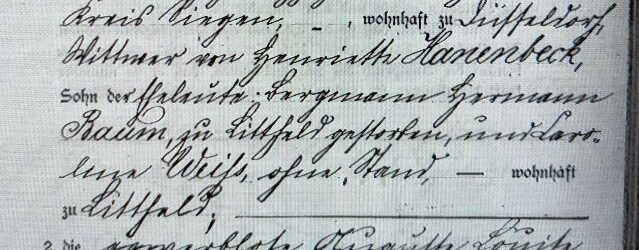 Kreis Siegen, -, wohnhaft zu Düsseldorf,
Wittwer von Henriette Hanenbeck,
Sohn der Eheleute: Bergmann Hermann
Baum, zu Littfeld gestorben, und Caro-
line Weiss, ohne Stand, — wohnhaft
zu Littfeld;
2. die gewerblose Auguste Louise